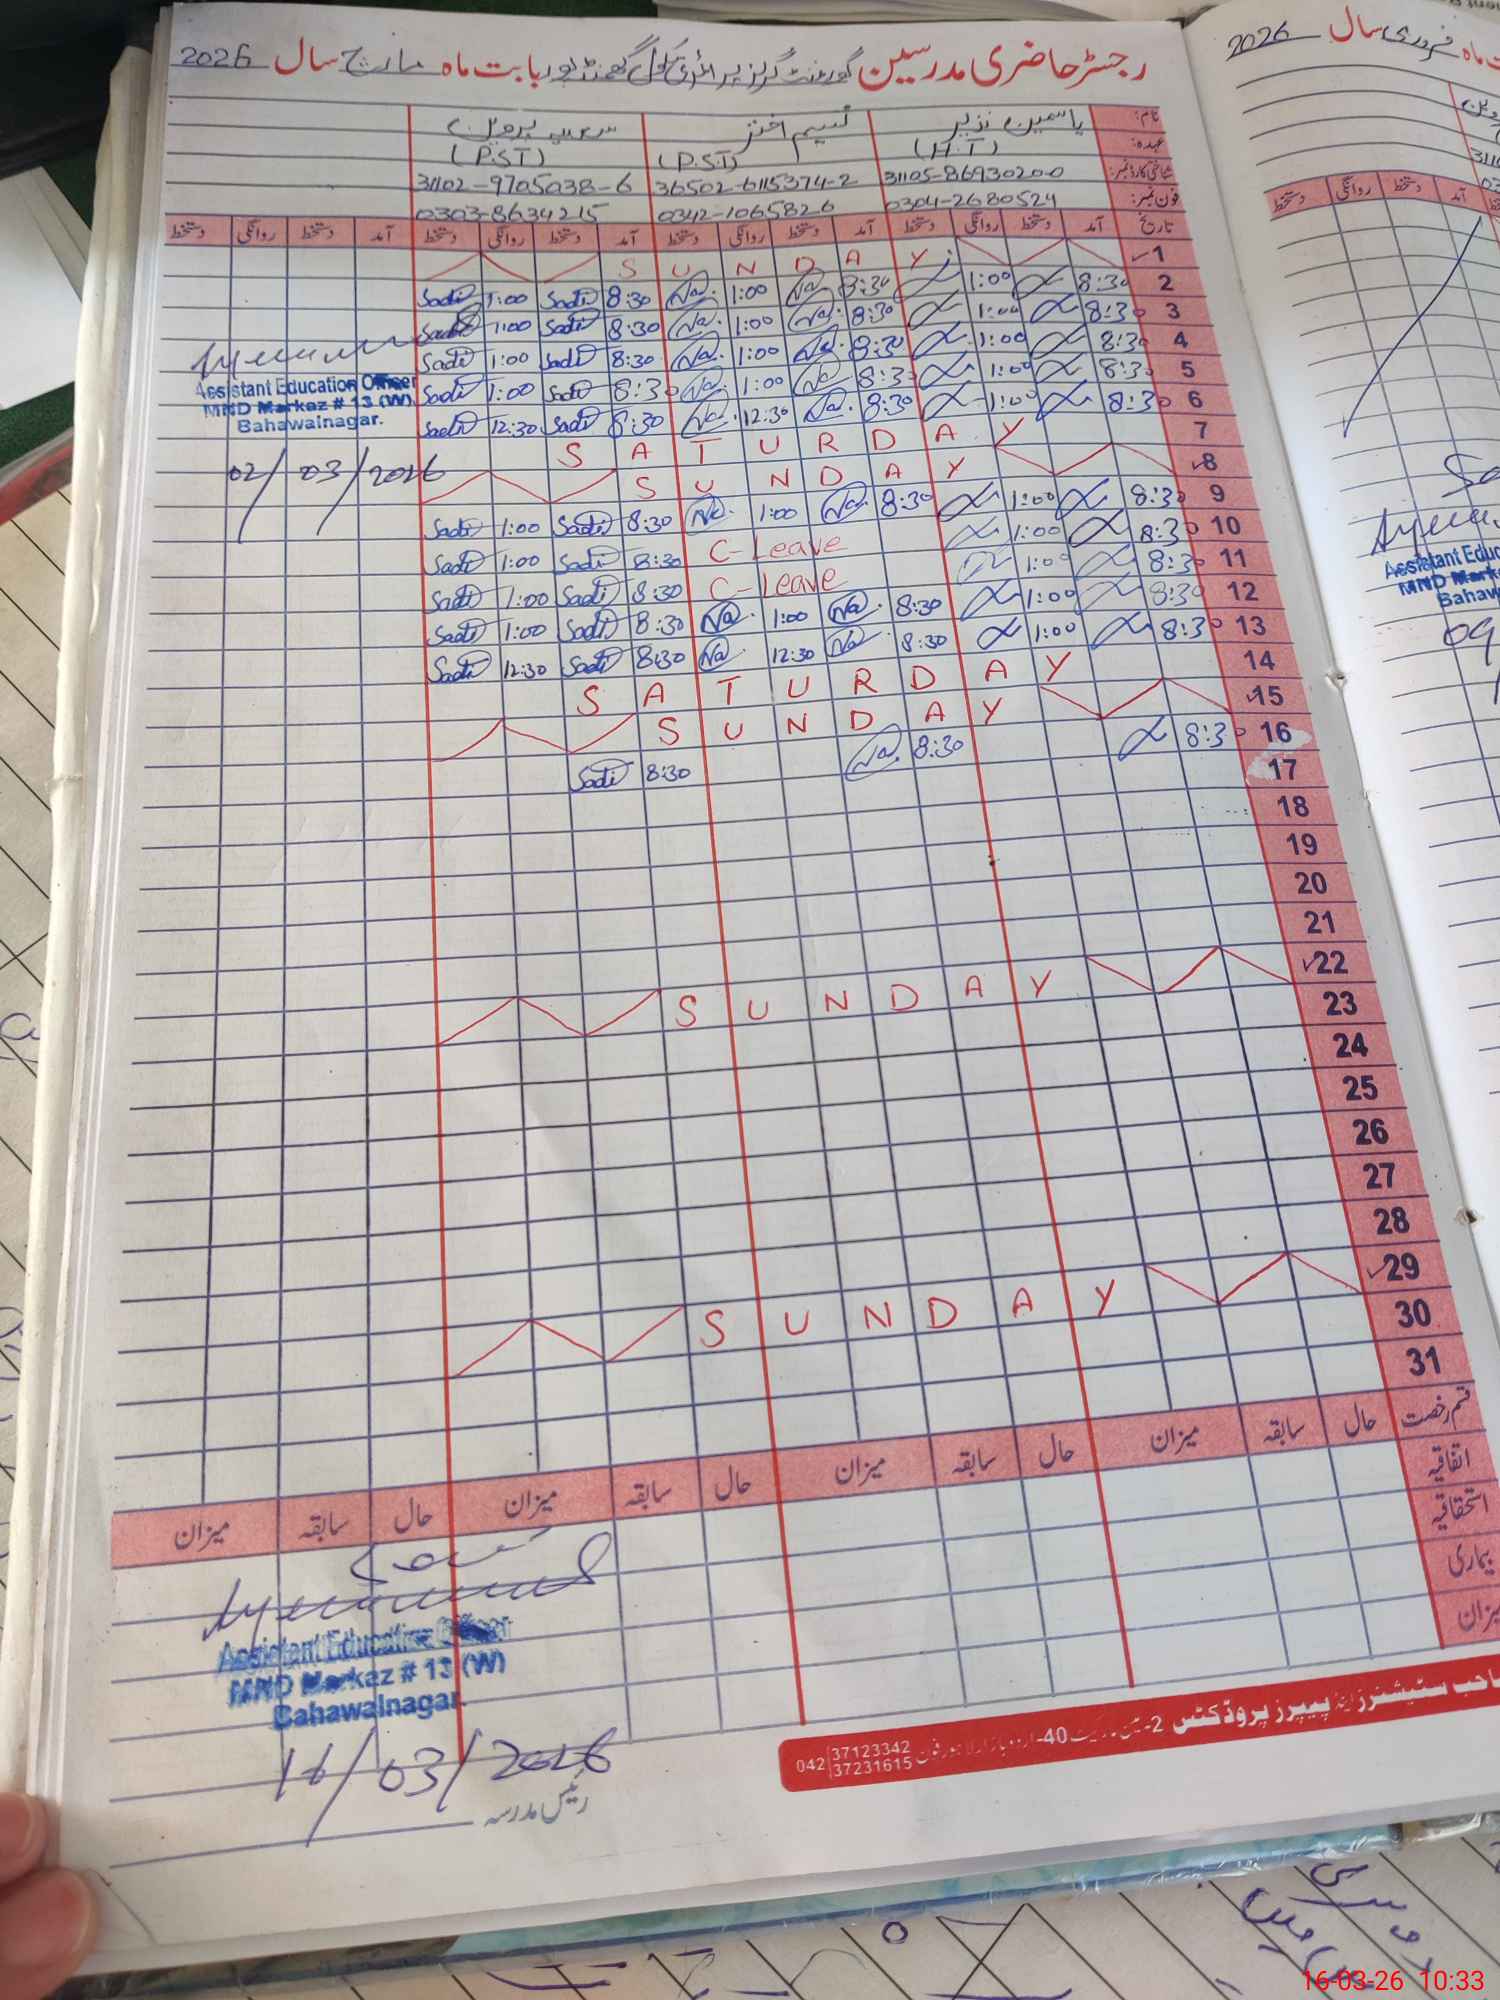 رجسٹر حاضری مدرسین گورنمنٹ گرلز پرائمری سکول گھمنڈپور بابت ماہ مارچ سال 2026
نام: یاسمین نذیر نسیم اختر سعدیہ پروین
عہدہ: (H.T) (P.S.T) (P.S.T)
شناختی کارڈ نمبر: 31105-8693020-0 36502-6115374-2 31102-9705038-6
فون نمبر: 0304-2680524 0342-1065826 0303-8634215
تاریخ آمد دستخط روانگی دستخط آمد دستخط روانگی دستخط آمد دستخط روانگی دستخط آمد دستخط روانگی دستخط
1 SUNDAY
2 8:30 1:00 8:30 Na. 1:00 Na. 8:30 Sadi 1:00 Sadi
3 8:30 1:00 8:30 Na. 1:00 Na. 8:30 Sadi 1:00 Sadi
4 8:30 1:00 8:30 Na. 1:00 Na. 8:30 Sadi 1:00 Sadi
5 8:30 1:00 8:30 Na. 1:00 Na. 8:30 Sadi 1:00 Sadi
6 8:30 1:00 8:30 Na. 12:30 Na. 8:30 Sadi 12:30 Sadi
7 SATURDAY
8 SUNDAY
9 8:30 1:00 8:30 Na. 1:00 Na. 8:30 Sadi 1:00 Sadi
10 8:30 1:00 C-Leave 8:30 Sadi 1:00 Sadi
11 8:30 1:00 C-Leave 8:30 Sadi 1:00 Sadi
12 8:30 1:00 8:30 Na. 1:00 Na. 8:30 Sadi 1:00 Sadi
13 8:30 1:00 8:30 Na. 12:30 Na. 8:30 Sadi 12:30 Sadi
14 SATURDAY
15 SUNDAY
16 8:30 8:30 Na. 8:30 Sadi
17
18
19
20
21
22 SUNDAY
23
24
25
26
27
28
29 SUNDAY
30
31
Assistant Education Officer
MND Markaz # 13 (W)
Bahawalnagar.
02/03/2026
قسم رخصت حال سابقہ میزان حال سابقہ میزان حال سابقہ میزان حال سابقہ میزان
اتفاقیہ
استحقاقیہ
بیماری
میزان
Assistant Education Officer
MND Markaz # 13 (W)
Bahawalnagar.
16/03/2026
رئیس مدرسہ
صاحب سٹیشنرز اینڈ پیپرز پروڈکٹس 2- 40-اردو بازار لاہور فون 042 37123342
37231615
ماہ فروری سال 2026
آمد دستخط روانگی دستخط
Assistant Educa
MND Mark
Bahaw
09
16-03-26 10:33